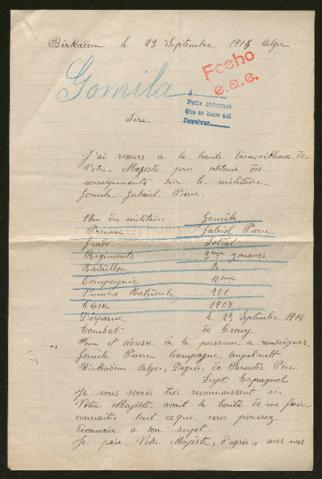 Birkadem le 23 Septembre 1915 Alger
Fecho
e.a.e.
Gomila
Pedir informes
que se hace del
Sire.
J'ai recours a la haute bienveillance de
Votre Majesté pour obtenir des
renseignements sur le militaire.
Gomila Gabriel Pierre.
Nom du militaire Gomila
Prénom Gabriel Pierre
Grade Soldat
Régiment 3eme zouaves
Bataillon
Compagnie
Numéro Matricule 261
Classe 1904
Disparu le 23 Septembre 1914
Combat de
Nom et adresse de la personne a renseigner.
Gomila Pierre Campagne
Birkadem Alger, Degré de Parenté Père
Sujet Espagnol
Je vous serais très reconnaissant si
Votre Majesté avait la bonté de me faire
connaitre tout ce que vous pourrez
découvrir a son sujet.
Je prie Votre Majesté, d'agréer, avec mes